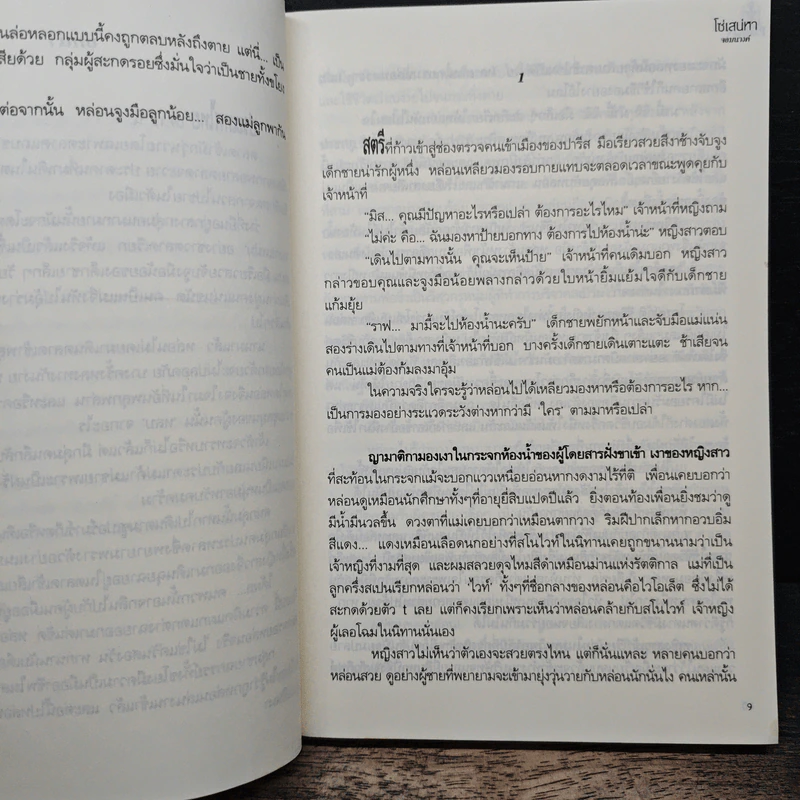 นล่อหลอกแบบนี้คงถูกตลบหลังถึงตาย แต่นี่... เป็น
สียด้วย กลุ่มผู้สะกดรอยซึ่งมั่นใจว่าเป็นชายทั้ง
ต่อจากนั้น หล่อนจูงมือลูกน้อย... สองแม่ลูกพากัน
โซ่เสน่หา
1
สตรีที่ก้าวเข้าสู่ช่องตรวจคนเข้าเมืองของปารีส มือเรียวสวยสีงาช้างจับจูง
เด็กชายน่ารักผู้หนึ่ง หล่อนเหลียวมองรอบกายแทบจะตลอดเวลาขณะพูดคุยกับ
เจ้าหน้าที่
“มิส... คุณมีปัญหาอะไรหรือเปล่า ต้องการอะไรไหม” เจ้าหน้าที่หญิงถาม
“ไม่ค่ะ คือ... ฉันมองหาป้ายบอกทาง ต้องการไปห้องน้ำน่ะ” หญิงสาวตอบ
“เดินไปตามทางนั้น คุณจะเห็นป้าย” เจ้าหน้าที่คนเดิมบอก หญิงสาว
กล่าวขอบคุณและจูงมือน้อยพลางกล่าวด้วยใบหน้ายิ้มแย้มใจดีกับเด็กชาย
แก้มยุ้ย
“ราฟ... มามี้จะไปห้องน้ำนะครับ” เด็กชายพยักหน้าและจับมือแม่แน่น
สองร่างเดินไปตามทางที่เจ้าหน้าที่บอก บางครั้งเด็กชายเดินเตาะแตะ ช้าเสียจน
คนเป็นแม่ต้องก้มลงมาอุ้ม
ในความจริงใครจะรู้ว่าหล่อนไม่ได้เหลียวมองหาหรือต้องการอะไร หาก...
เป็นการมองอย่างระแวดระวังต่างหากว่ามี ‘ใคร’ ตามมาหรือเปล่า
ญามาติกามองเงาในกระจกห้องน้ำของผู้โดยสารฝั่งขาเข้า เงาของหญิงสาว
ที่สะท้อนในกระจกแม้จะบอกแววเหนื่อยอ่อนหากงดงามไร้ที่ติ เพื่อนเคยบอกว่า
หล่อนดูเหมือนนักศึกษาทั้งๆที่อายุยี่สิบแปดปีแล้ว ยิ่งตอนท้องเพื่อนยิ่งชมว่าดู
มีน้ำมีนวลขึ้น ดวงตาที่แม่เคยบอกว่าเหมือนตากวาง ริมฝีปากเล็กหากอวบอิ่ม
สีแดง... แดงเหมือนเลือดนกอย่างที่สโนไวท์ในนิทานเคยถูกขนานนามว่าเป็น
เจ้าหญิงที่งามที่สุด และผมสลวยดุจไหมสีดำเหมือนม่านแห่งรัตติกาล แม่ที่เป็น
ลูกครึ่งสเปนเรียกหล่อนว่า ‘ไวท์’ ทั้งๆที่ชื่อกลางของหล่อนคือไวโอเล็ต ซึ่งไม่ได้
สะกดด้วยตัว t เลย แต่ก็คงเรียกเพราะเห็นว่าหล่อนคล้ายกับสโนไวท์ เจ้าหญิง
ผู้เลอโฉมในนิทานนั่นเอง
หญิงสาวไม่เห็นว่าตัวเองจะสวยตรงไหน แต่ก็นั่นแหละ หลายคนบอกว่า
หล่อนสวย ดูอย่างผู้ชายที่พยายามจะเข้ามายุ่งวุ่นวายกับหล่อนนักนั่นไง คนเหล่านั้น
9